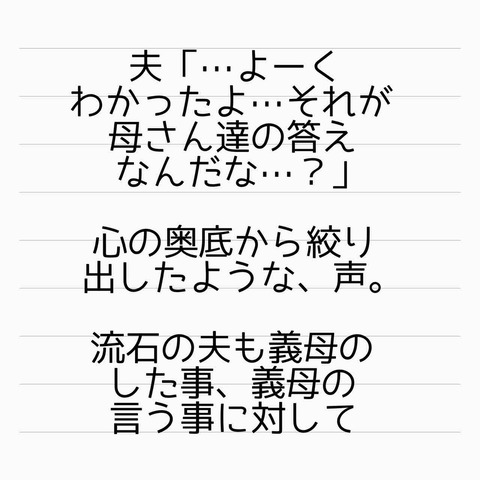 夫「…よーく
わかったよ…それが
母さん達の答え
なんだな…？」
心の奥底から絞り
出したような、声。
流石の夫も義母の
した事、義母の
言う事に対して